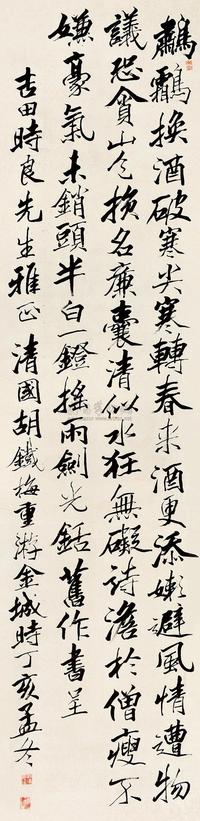 鷫鸘換酒破寒尖寒轉春來酒更添嬾避風情遭物
議恐貪山色損名廉囊清似水狂無礙詩澹於僧瘦不
嫌豪氣未銷頭半白一鐙搖雨劍光銛 舊作書呈
吉田時良先生雅正 清國胡鐵梅重游金城時丁亥孟冬